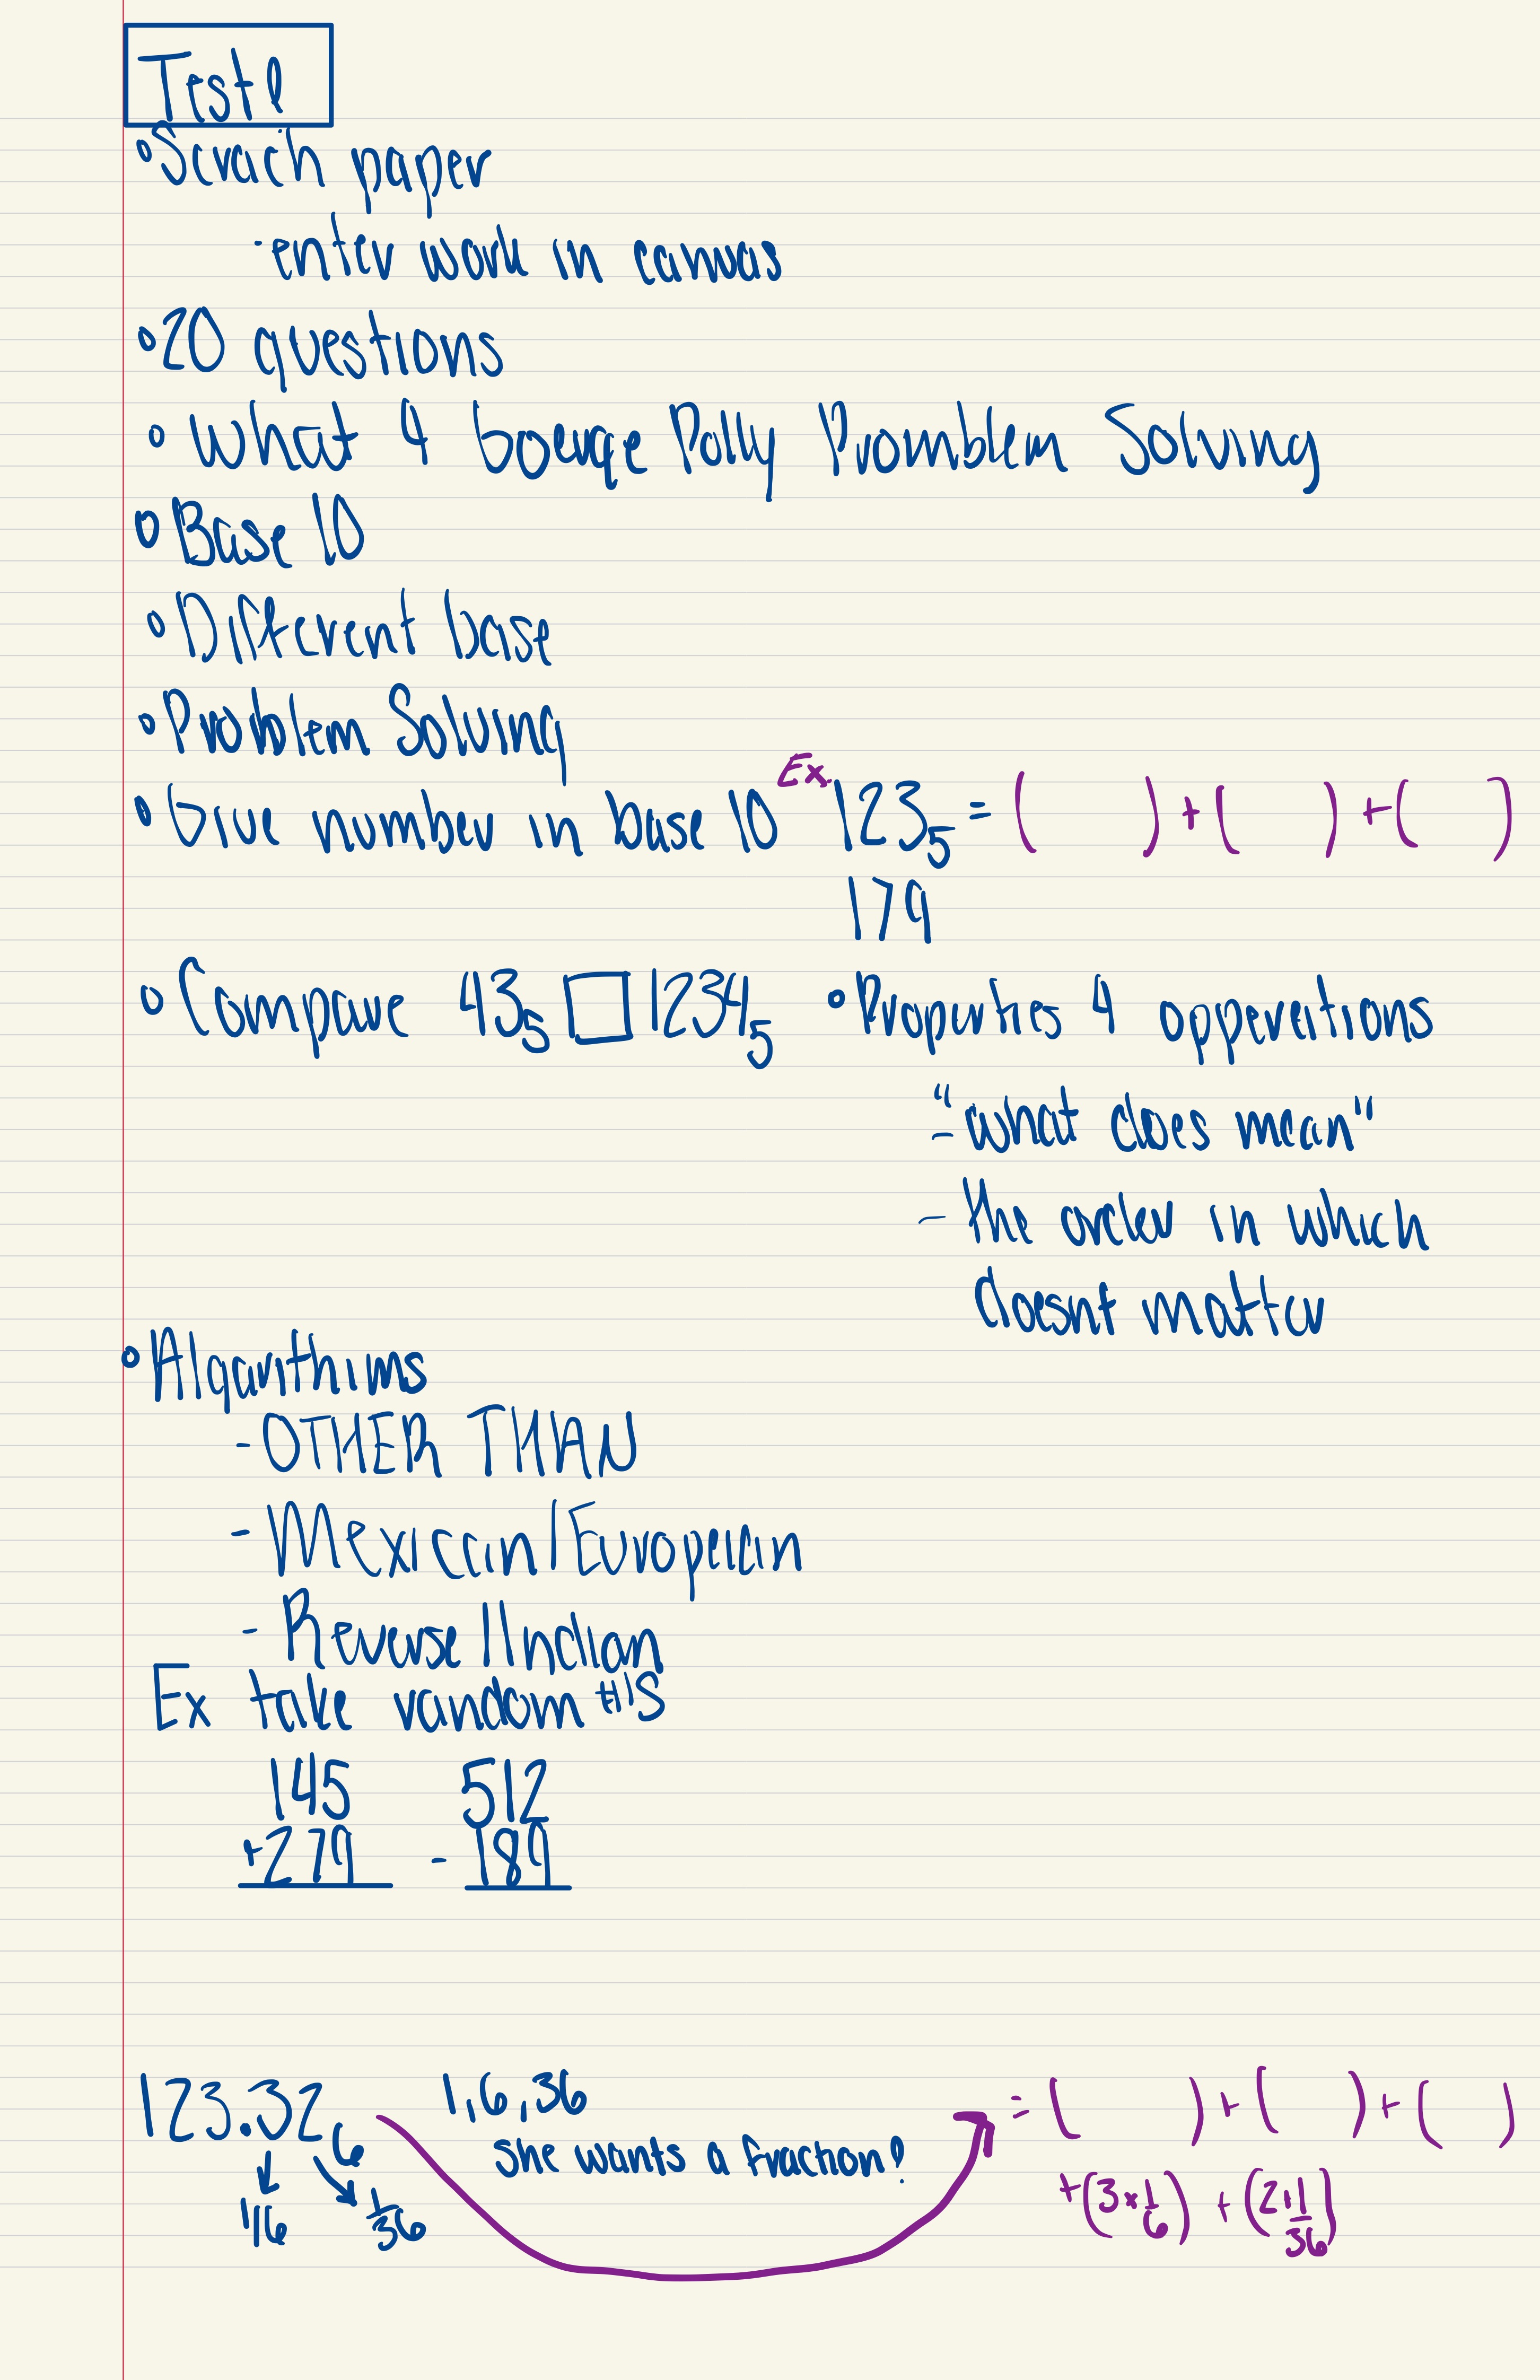 Test!
°Scrach paper
-enter work in canvas
°20 questions
° What 4 Goerge Polly Promblem Solving
°Base 10
°Different base
°Problem Solving
°Give number in base 10 Ex. 123₅ = ( ) + ( ) + ( )
179
°Compare 43₅ □ 1234₅
°Properties 4 opperations
- "what does mean"
- the order in which
doesnt matter
°Algorithims
- OTHER THAN
- Mexican/European
- Reverse/Indian
Ex take random #'s
145 512
+279 - 189
123.32₆ 1,6,36 = ( ) + ( ) + ( )
she wants a fraction!
1/6 1/36 + (3 × 1/6) + (2 × 1/36)